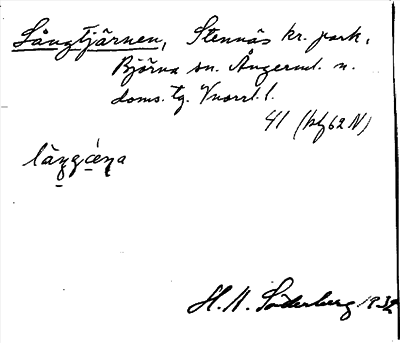 Långtjärnen, Stennäs kr. park,
Björna sn. Ångerml. n.
doms. tg. Vnorrl. l.
41 (kf 62 N)
H. N. Söderberg 1932